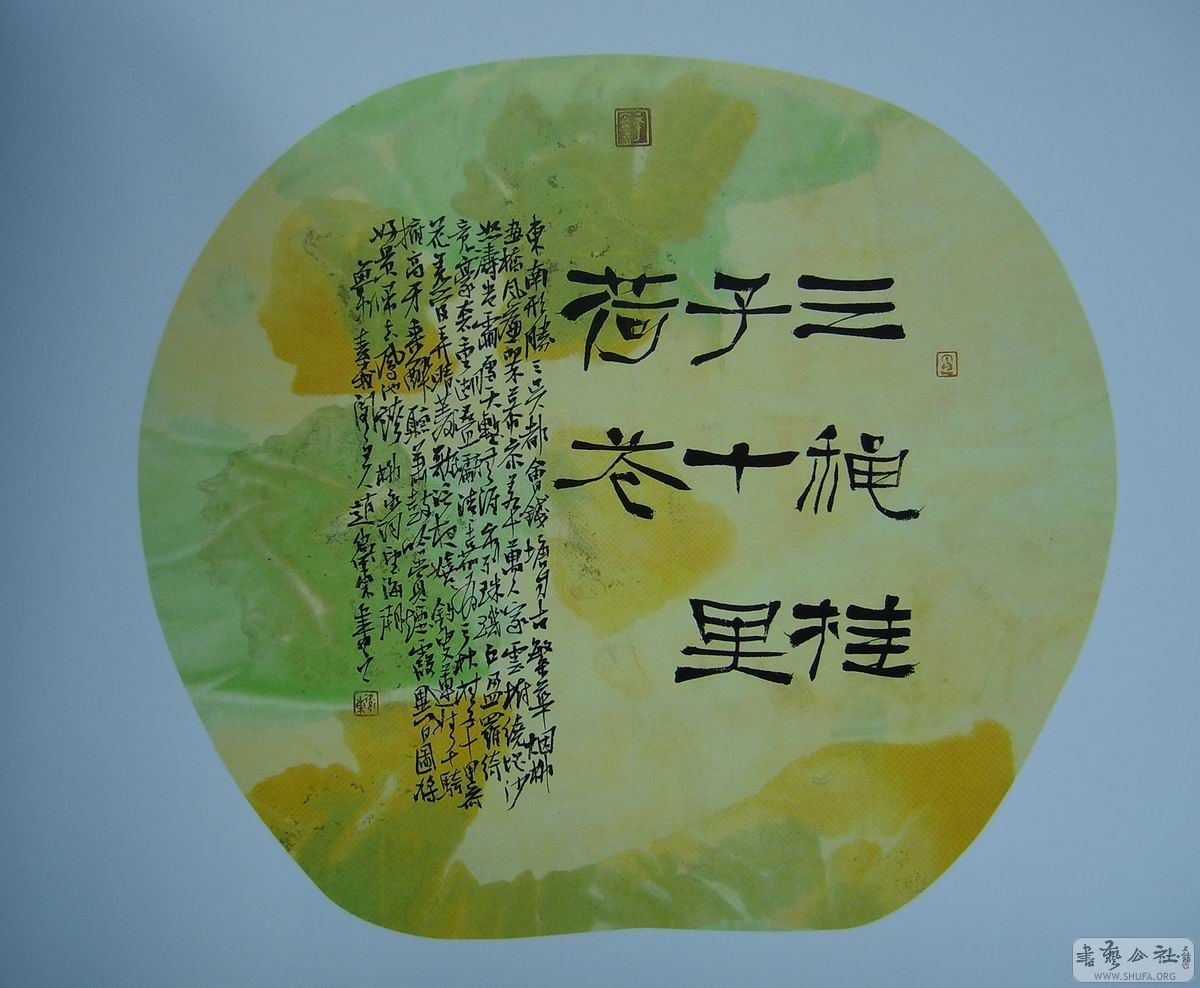 三穐桂
子十里
荷花
東南形勝三吴都會錢塘自古繁華烟柳
畫橋風簾翠幕参差十萬人家雲樹繞堤沙
怒濤卷霜雪天塹无涯市列珠璣户盈羅綺
竞豪奢重湖叠巘清嘉有三秋桂子十里荷
花羌管弄晴菱歌泛夜嬉嬉釣叟蓮娃千騎
擁高牙乘醉聽簫鼓吟賞煙霞異日圖将
好景歸去鳳池誇 柳永詞望海潮
書藝公社
WWW.SHUFA.ORG